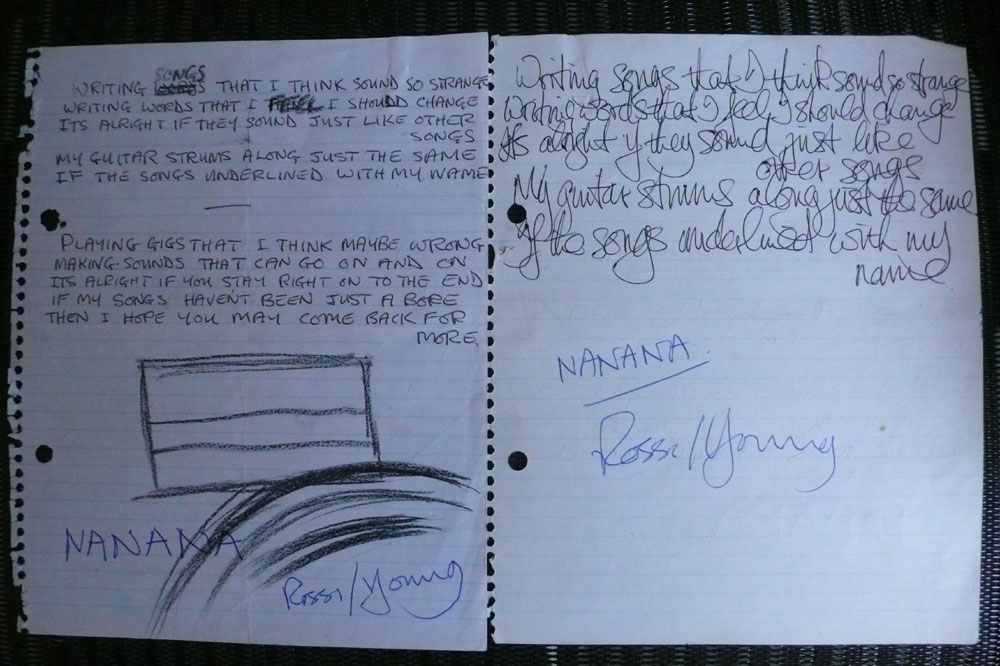 WRITING SONGS THAT I THINK SOUND SO STRANGE
WRITING WORDS THAT I I SHOULD CHANGE
ITS ALRIGHT IF THEY SOUND JUST LIKE OTHER
SONGS
MY GUITAR STRUMS ALONG JUST THE SAME
IF THE SONGS UNDERLINED WITH MY NAME
PLAYING GIGS THAT I THINK MAYBE WRONG
MAKING SOUNDS THAT CAN GO ON AND ON
ITS ALRIGHT IF YOU STAY RIGHT ON TO THE END
IF MY SONGS HAVEN'T BEEN JUST A BORE
THEN I HOPE YOU MAY COME BACK FOR
MORE,
NANANA
Rossi/Young
Writing songs that I think sound so strange
Writing words that I feel I should change
Its alright if they sound just like
other songs
My guitar strums along just the same
If the songs underlined with my
name
NANANA.
Rossi/Young